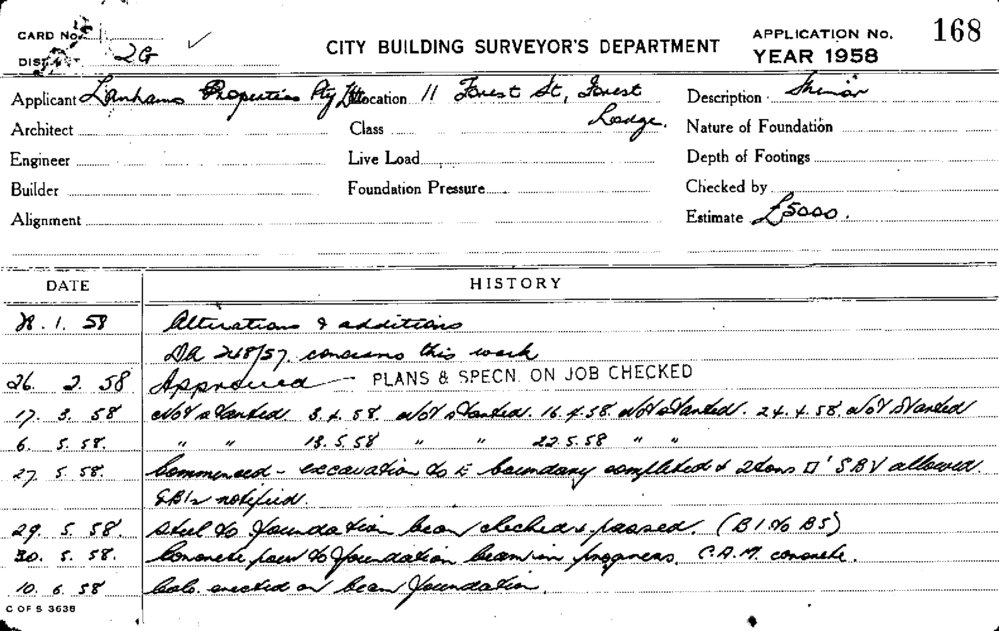 CARD No. 168
CITY BUILDING SURVEYOR'S DEPARTMENT
APPLICATION No.
YEAR 1958
DISTRICT 2G
Applicant Lanhams Properties Pty Ltd Location 11 Forest St, Forest Lodge. Description
Architect Class Nature of Foundation
Engineer Live Load Depth of Footings
Builder Foundation Pressure Checked by
Alignment Estimate £5000.
DATE HISTORY
28. 1. 58 Alterations & additions
DA 248/57. concerns this work
26. 2. 58 Approved — PLANS & SPECN. ON JOB CHECKED
17. 3. 58 Not started. 3.4.58. Not started. 16.4.58. Not started. 24.4.58. Not started
6. 5. 58. " " 13.5.58 " " 22.5.58 " "
27. 5. 58. Commenced - excavation to E boundary completed & 2 tons □' SBV allowed
notified.
29. 5. 58. Steel to foundation beam checked & passed. (B1 to B5)
30. 5. 58. Concrete pour to foundation beam in progress. C.A.M. concrete.
10. 6. 58 Cols. erected on beam foundation.
C OF S 3638